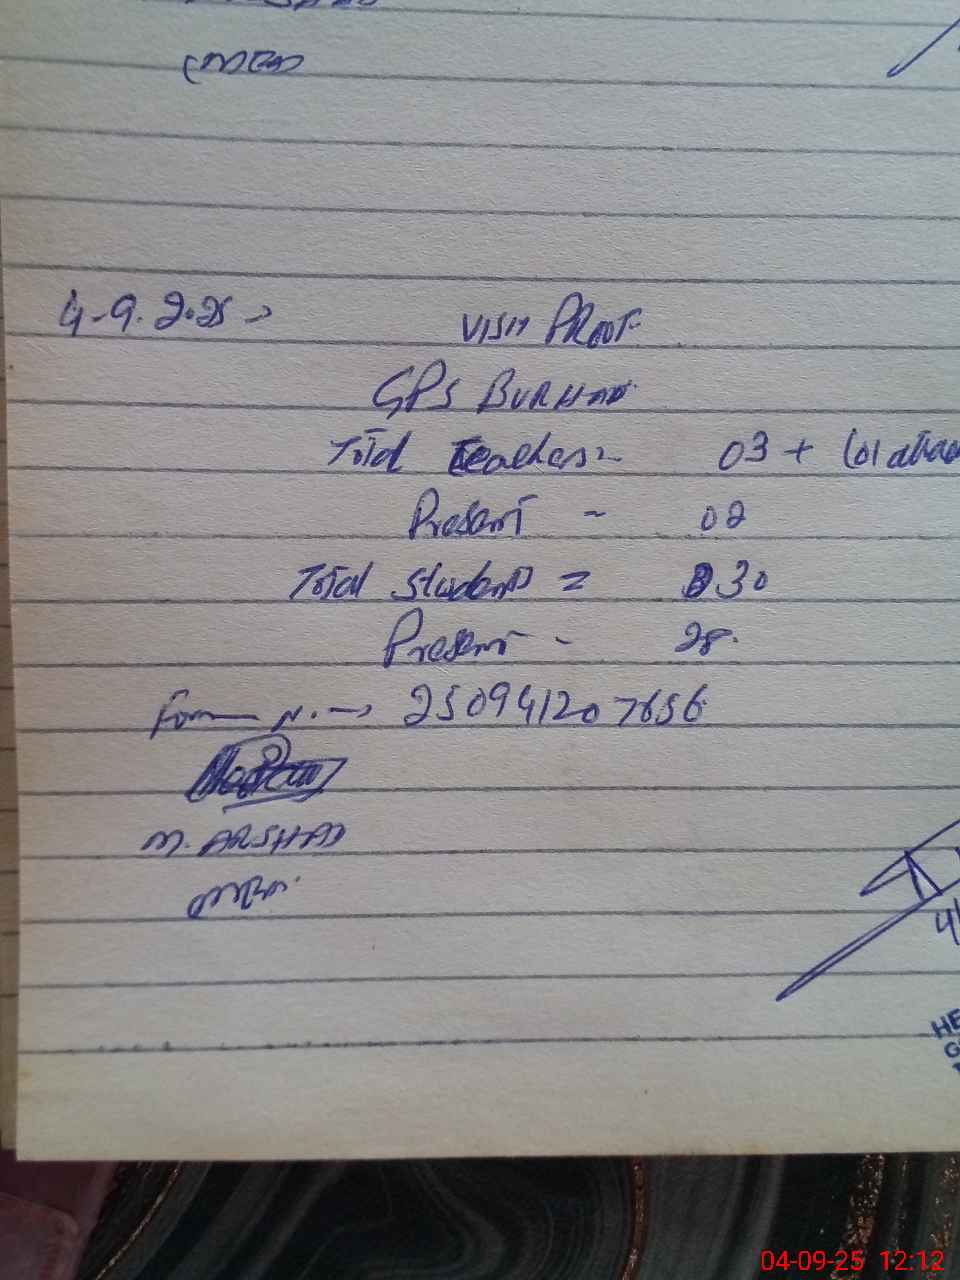 4-9.2025 →
VISIT PROOF
GPS BURHAD
Total Teachers = 03 + (01
Present - 02
Total Students = 30
Present - 28.
Form N. → 250941207656
M. ARSHAD
HE
04-09-25 12:12